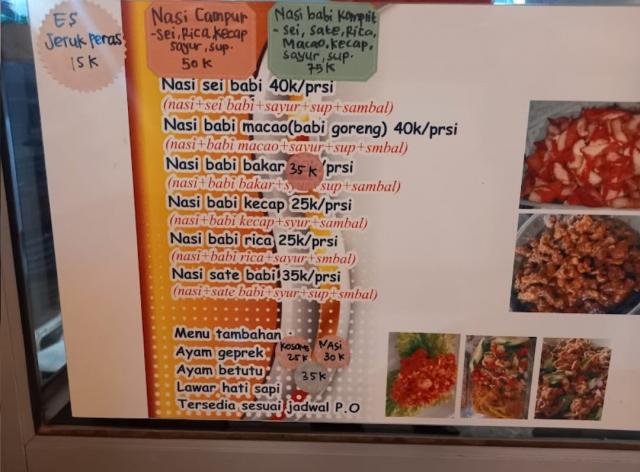 ES
Jeruk peras
15K
Nasi Campur
-sei, Rica, Kecap
sayur, sup.
50 K
Nasi babi Komplit
- sei, sate, Rica,
Macao, kecap,
sayur, sup.
75K
Nasi sei babi 40k/prsi
(nasi+sei babi+sayur+sup+sambal)
Nasi babi macao(babi goreng) 40k/prsi
(nasi+babi macao+sayur+sup+smbal)
Nasi babi bakar 35K /prsi
(nasi+babi bakar+s sup+sambal)
Nasi babi kecap 25k/prsi
(nasi+babi kecap+syur+sambal)
Nasi babi rica 25k/prsi
(nasi+babi rica+sayur+smbal)
Nasi sate babi 35k/prsi
(nasi+sate babi+syur+sup+smbal)
Menu tambahan :
Ayam geprek Kosong 25K NASI 30K
Ayam betutu 35K
Lawar hati sapi
Tersedia sesuai jadwal P.O